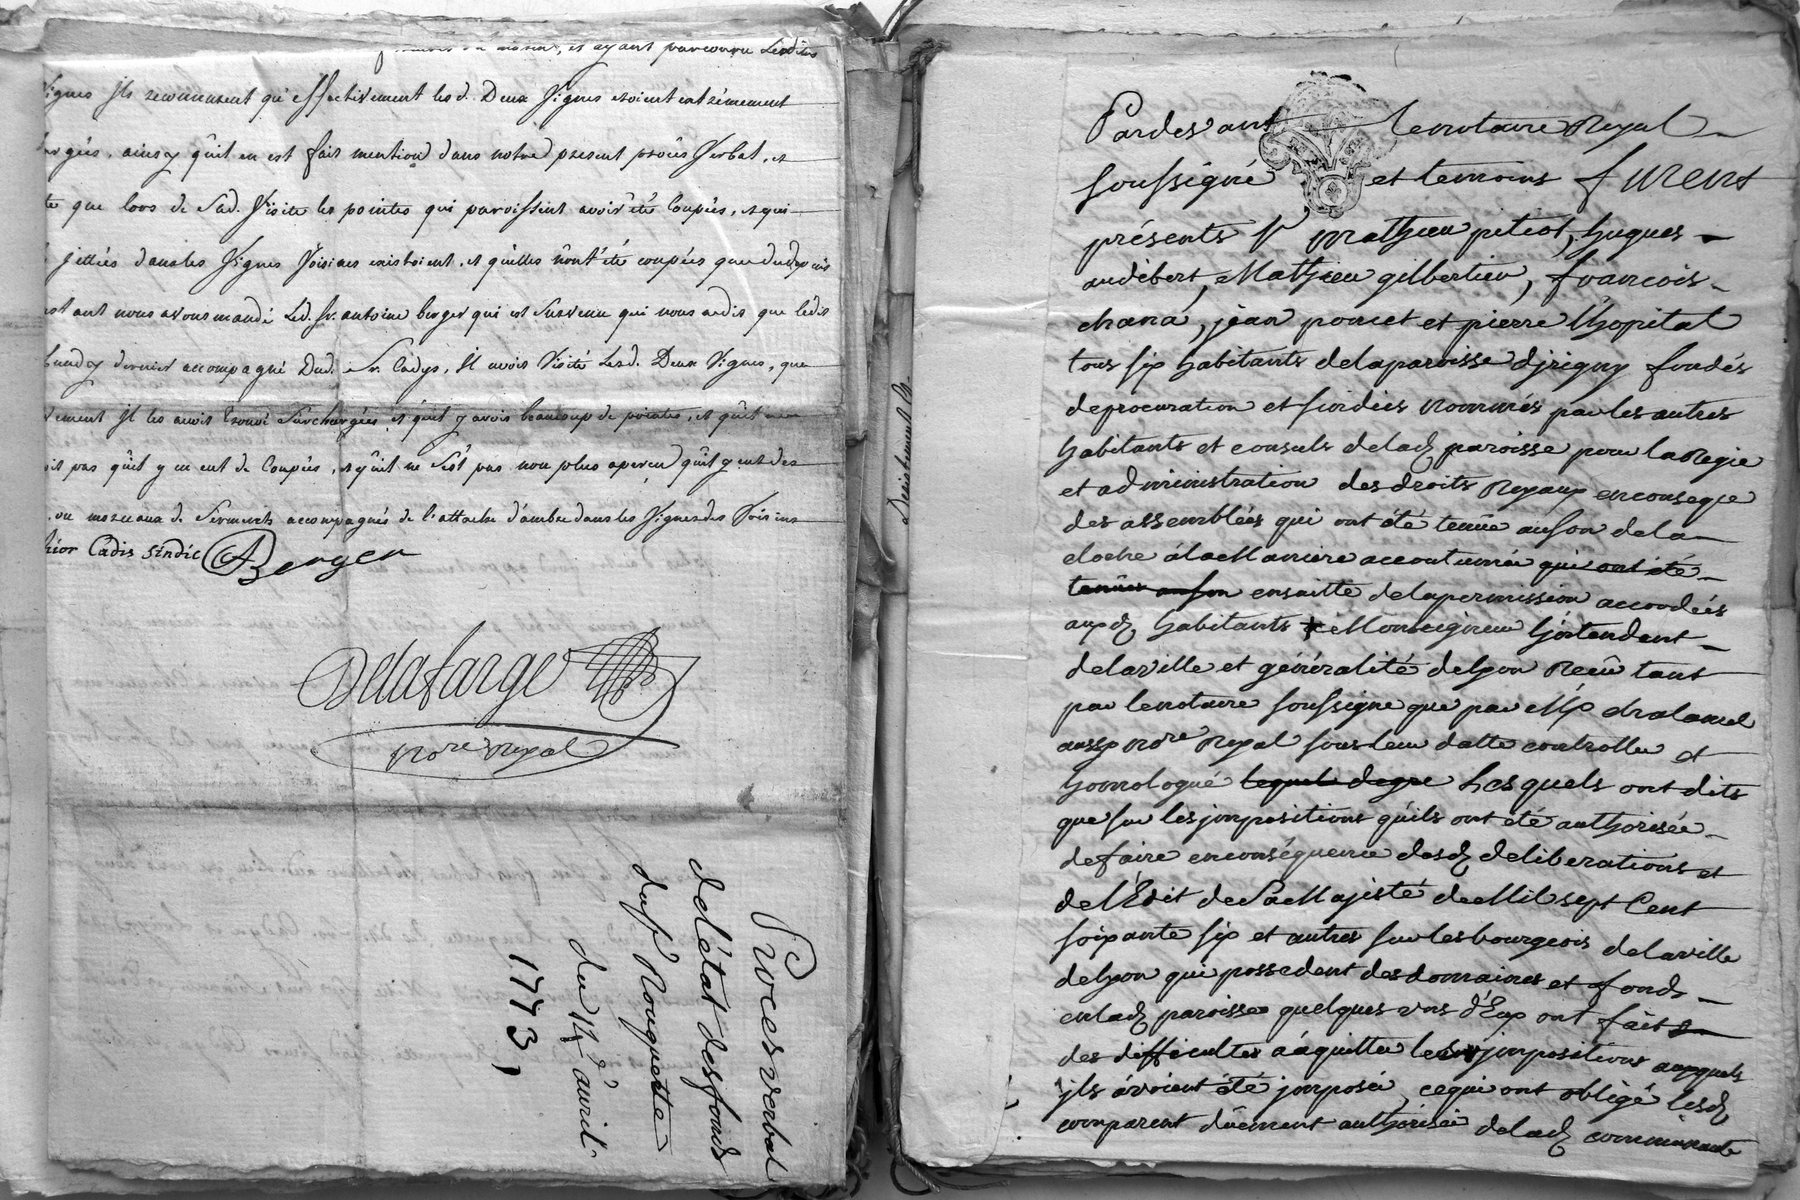 et ayant parcouru Lesdittes
Vignes ils reconnurent qu'effectivement lesd. Deux Vignes etoient extrémement
ainsy qu'il en est fait mention dans notre present procès Verbal, et
que lors de Sad. Visite les pointes qui paroissent avoir été Coupées, et qui
jettées dans les Vignes Voisines existoient, et qu'elles n'ont été coupées que dudepuis
nous avons mandé Led. Sr. antoine berger qui est Survenu qui nous a dis que ledit
dernier accompagné Dud. Sr. Cadys, Il avois Visité Lesd. Deux Vignes, que
Il les avoit trouvé Surchargées, et qu'il y avois beaucoup de pointes, et qu'il
pas qu'il y en eut de Coupées, et qu'il ne s'est pas non plus apercu qu'il y eut des
ou morceaux de Serments accompagnés de l'attache d'ambre dans les Vignes des Voisins
Cadis sindic ABerger
Delafarge
Nore royal
Procès verbal
de l'état des fonds
du sr Rouquette
du 12e avril
1773,
Desistement
Pardevant le notaire Royal
soussigné et temoins furent
présents Sr Mathieu petiot, hugues
audebert, Mathieu gilbertier, francois
chana, jean poncet et pierre l'hopital
tous six habitants de la paroisse d'jrigny fondés
de procuration et sindics nommés par les autres
habitants et consuls de lad. paroisse pour la Regie
et administration des droits Royaux en conseqce
des assemblées qui ont été tenüe au son de la
cloche à la Maniere accoutumée qui ont été
tenües au son ensuitte de la permission accordées
auxd. habitants Monseigneur l'jntendent
de la ville et généralité de Lyon Reçû tant
par le notaire soussigné que par Me
aussy Nore Royal sous leur datte controllu et
homologué lequel degre Lesquels ont dits
que sur les jmpositions qu'ils ont été authorisée
de faire en conséquence desd. deliberations et
de l'Edit de Sa Majesté de Mil sept Cent
soixante six et autres sur les bourgeois de la ville
de Lyon qui possedent des domaines et fonds
en lad. paroisse quelques uns d'Eux ont fait
des difficultes a aquitter les jmpositions auxquels
jls avoient été jmposés, ce qui ont obligé lesd.
comparent düement authorisée de lad. communauté